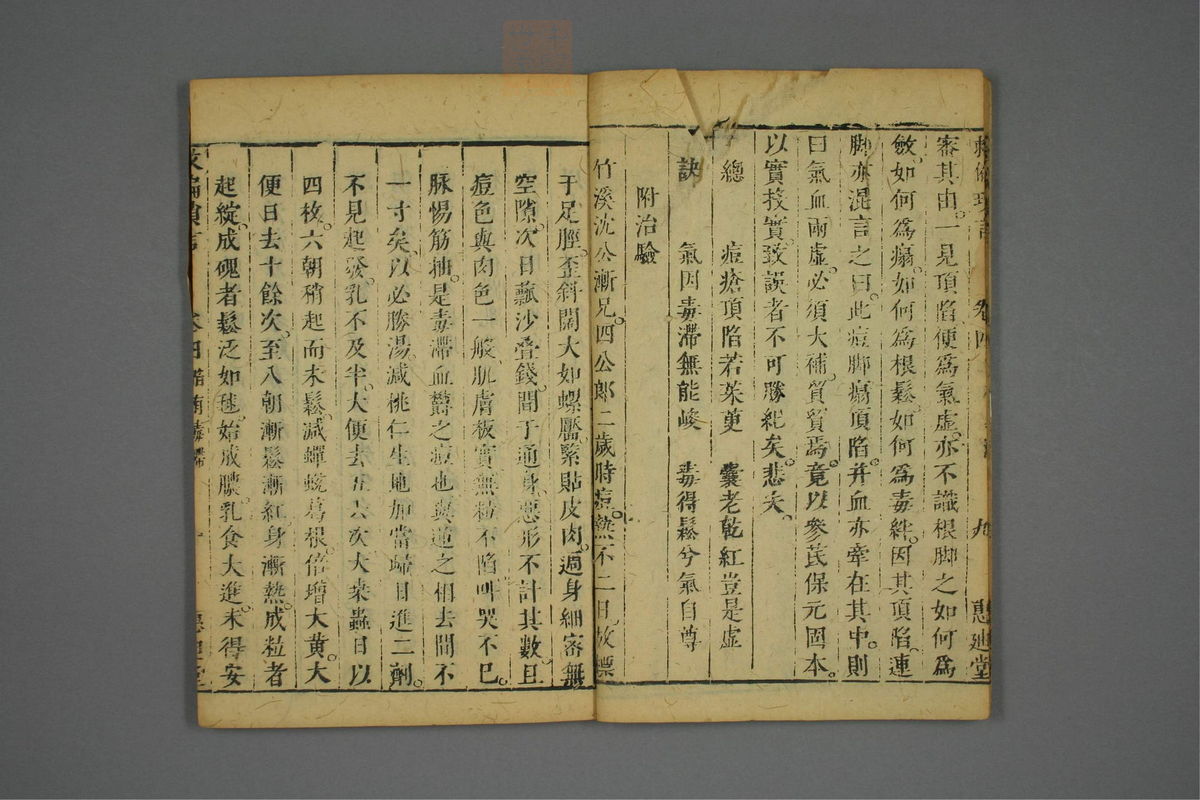 救偏瑣言 卷四 九 惠迪堂
審其由。一見頂陷便爲氣虛。亦不識根脚之如何爲
斂。如何爲塌。如何爲根鬆。如何爲毒絆。因其頂陷。連
脚亦混言之曰。此痘脚塌頂陷。并血亦牽在其中。則
曰氣血兩虛。必須大補。貿貿焉。竟以參芪保元固本。
以實投實。致誤者不可勝紀矣。悲夫。
總 痘瘡頂陷若茱萸 囊老乾紅豈是虛
訣 氣因毒滯無能峻 毒得鬆兮氣自尊
附治驗
竹溪沈公漸兄。四公郎二歲時痘。熱不二日。放標
于足脛。歪斜闊大如螺靨。緊貼皮肉。遍身細密無
空隙。次日瓤沙叠錢。間于通身。惡形不計其數。且
痘色與肉色一般。肌膚板實無粒不陷。叫哭不已。
脉惕筋抽。是毒滯血欝之痘也。與逆之相去間不
一寸矣。以必勝湯。減桃仁生地加當歸。日進二劑。
不見起發。乳不及半。大便去五六次。大桒蟲日以
四枚。六朝稍起而未鬆。減蟬蛻葛根。倍增大黃。大
便日去十餘次。至八朝漸鬆漸紅。身漸熱。成粒者
起綻。成磈者鬆泛如毬。始成膿。乳食大進。未得安
救偏瑣言 卷四